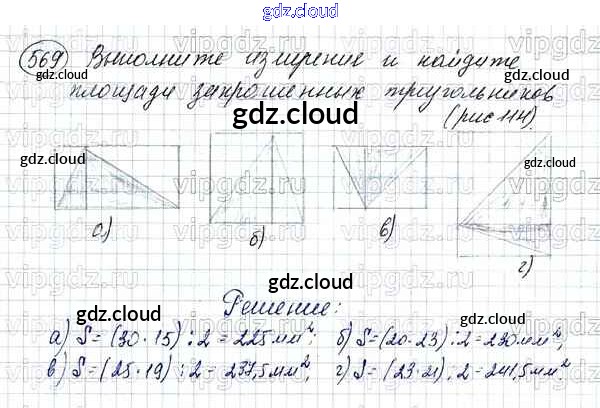 gdz.cloud
569 Выполните измерение и найдите
площади закрашенных треугольников
gdz.cloud
(рис 144).
gdz.cloud
gdz.cloud
gdz.cloud
gdz.cloud
а) б) в) г)
gdz.cloud
Решение:
gdz.cloud
а) S = (30 · 15) : 2 = 225 мм²; б) S = (20 · 23) : 2 = 230 мм²;
в) S = (25 · 19) : 2 = 237,5 мм²; г) S = (23 · 21) : 2 = 241,5 мм²
gdz.cloud
gdz.cloud